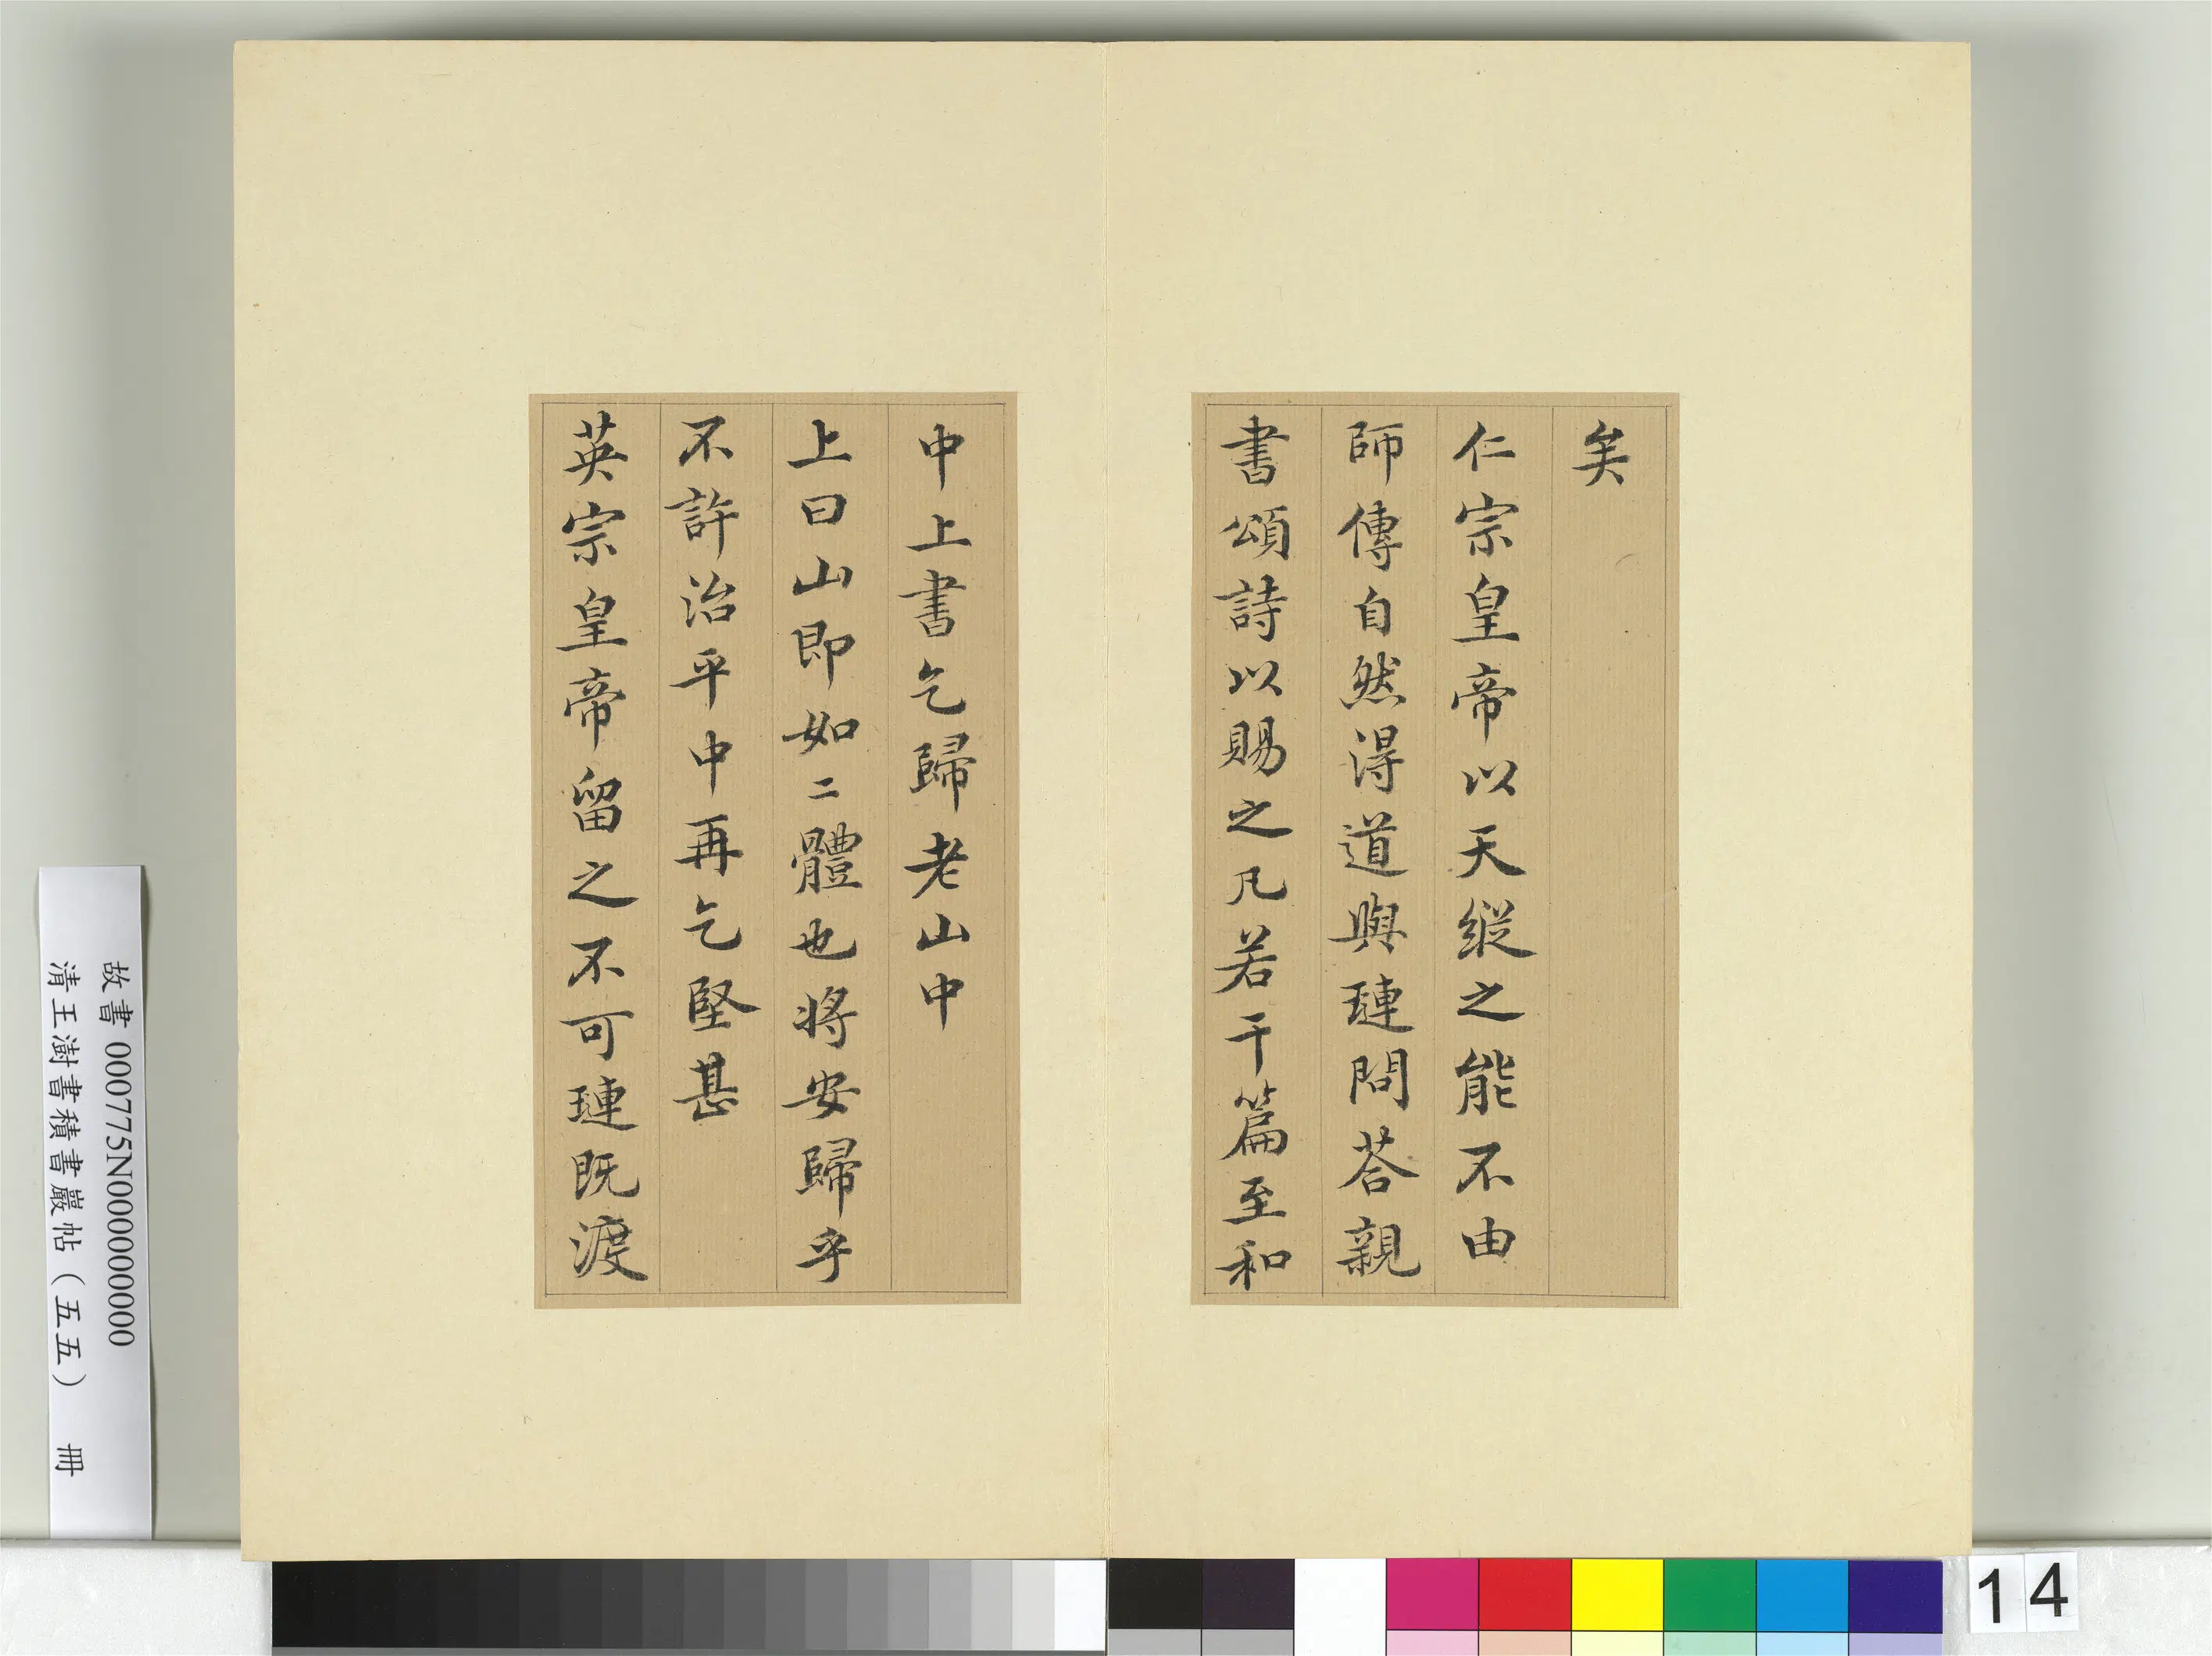 矣
仁宗皇帝以天縱之能不由
師傳自然得道與璉問荅親
書頌詩以賜之凡若干篇至和
中上書乞歸老山中
上曰山即如二體也將安歸乎
不許治平中再乞堅甚
英宗皇帝留之不可璉既渡
故書 000775N000000000
清王澍書積書巖帖（五五） 冊
14